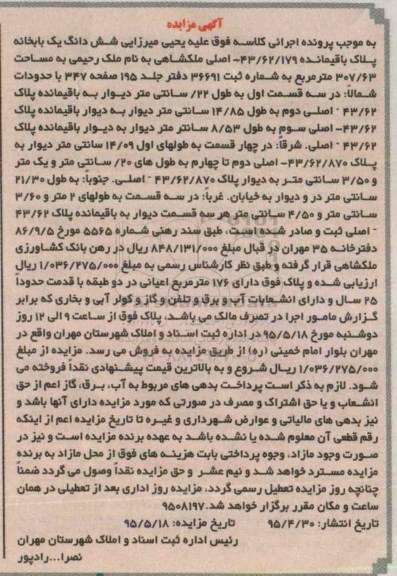 آگهی مزایده
به موجب پرونده اجرائی کلاسه فوق علیه یحیی میرزایی شش دانگ یک بابخانه
پلاک باقیمانده ۴۳/۶۲/۱۷۹- اصلی ملکشاهی به نام ملک رحیمی به مساحت
۳۰۷/۶۳ مترمربع به شماره ثبت ۳۶۶۹۱ دفتر جلد ۱۹۵ صفحه ۳۴۷ با حدودات
شمالاً: در سه قسمت اول به طول ۲۲/ سانتی متر دیوار به باقیمانده پلاک
۴۳/۶۲ - اصلی دوم به طول ۱۴/۸۵ سانتی متر دیوار به دیوار باقیمانده پلاک
۴۳/۶۲- اصلی سوم به طول ۸/۵۳ سانتر متر دیوار به دیوار باقیمانده پلاک
۴۳/۶۲ - اصلی. شرقاً: در چهار قسمت به طولهای اول ۱۴/۰۹ سانتی متر دیوار به
پلاک ۴۳/۶۲/۸۷۰- اصلی دوم تا چهارم به طول های ۲۰/ سانتی متر و یک متر
و ۳/۵۰ سانتی متر به دیوار پلاک ۴۳/۶۲/۸۷۰ - اصلی. جنوباً: به طول ۲۱/۳۰
سانتی متر در و دیوار به خیابان. غرباً: در سه قسمت به طولهای ۲ متر و ۳/۶۰
سانتی متر و ۴/۵۰ سانتی متر هر سه قسمت دیوار به باقیمانده پلاک ۴۳/۶۲
- اصلی ثبت و صادر شده است، طبق سند رهنی شماره ۵۵۶۵ مورخ ۸۶/۹/۵
دفترخانه ۳۵ مهران در قبال مبلغ ۸۴۸/۱۳۱/۰۰۰ ریال در رهن بانک کشاورزی
ملکشاهی قرار گرفته و طبق نظر کارشناس رسمی به مبلغ ۱/۰۳۶/۲۷۵/۰۰۰ ریال
ارزیابی شده و پلاک فوق دارای ۱۷۶ مترمربع اعیانی در دو طبقه با قدمت حدوداً
۲۵ سال و دارای انشعابات آب و برق و تلفن و گاز و کولر آبی و بخاری که برابر
گزارش مامور اجرا در تصرف مالک می باشد، پلاک فوق از ساعت ۹ الی ۱۲ روز
دوشنبه مورخ ۹۵/۵/۱۸ در اداره ثبت اسناد و املاک شهرستان مهران واقع در
مهران بلوار امام خمینی (ره) از طریق مزایده به فروش می رسد. مزایده از مبلغ
۱/۰۳۶/۲۷۵/۰۰۰ ریال شروع و به بالاترین قیمت پیشنهادی نقداً فروخته می
شود. لازم به ذکر است پرداخت بدهی های مربوط به آب، برق، گاز اعم از حق
انشعاب و یا حق اشتراک و مصرف در صورتی که مورد مزایده دارای آنها باشد و
نیز بدهی های مالیاتی و عوارض شهرداری و غیره تا تاریخ مزایده اعم از اینکه
رقم قطعی آن معلوم شده یا نشده باشد به عهده برنده مزایده است و نیز در
صورت وجود مازاد، وجوه پرداختی بابت هزینه های فوق از محل مازاد به برنده
مزایده مسترد خواهد شد و نیم عشر و حق مزایده نقداً وصول می گردد ضمناً
چنانچه روز مزایده تعطیل رسمی گردد، مزایده روز اداری بعد از تعطیلی در همان
ساعت و مکان مقرر برگزار خواهد شد. ۹۵۰۸۱۹۷
تاریخ انتشار: ۹۵/۴/۳۰ تاریخ مزایده: ۹۵/۵/۱۸
رئیس اداره ثبت اسناد و املاک شهرستان مهران
نصرا... رادپور